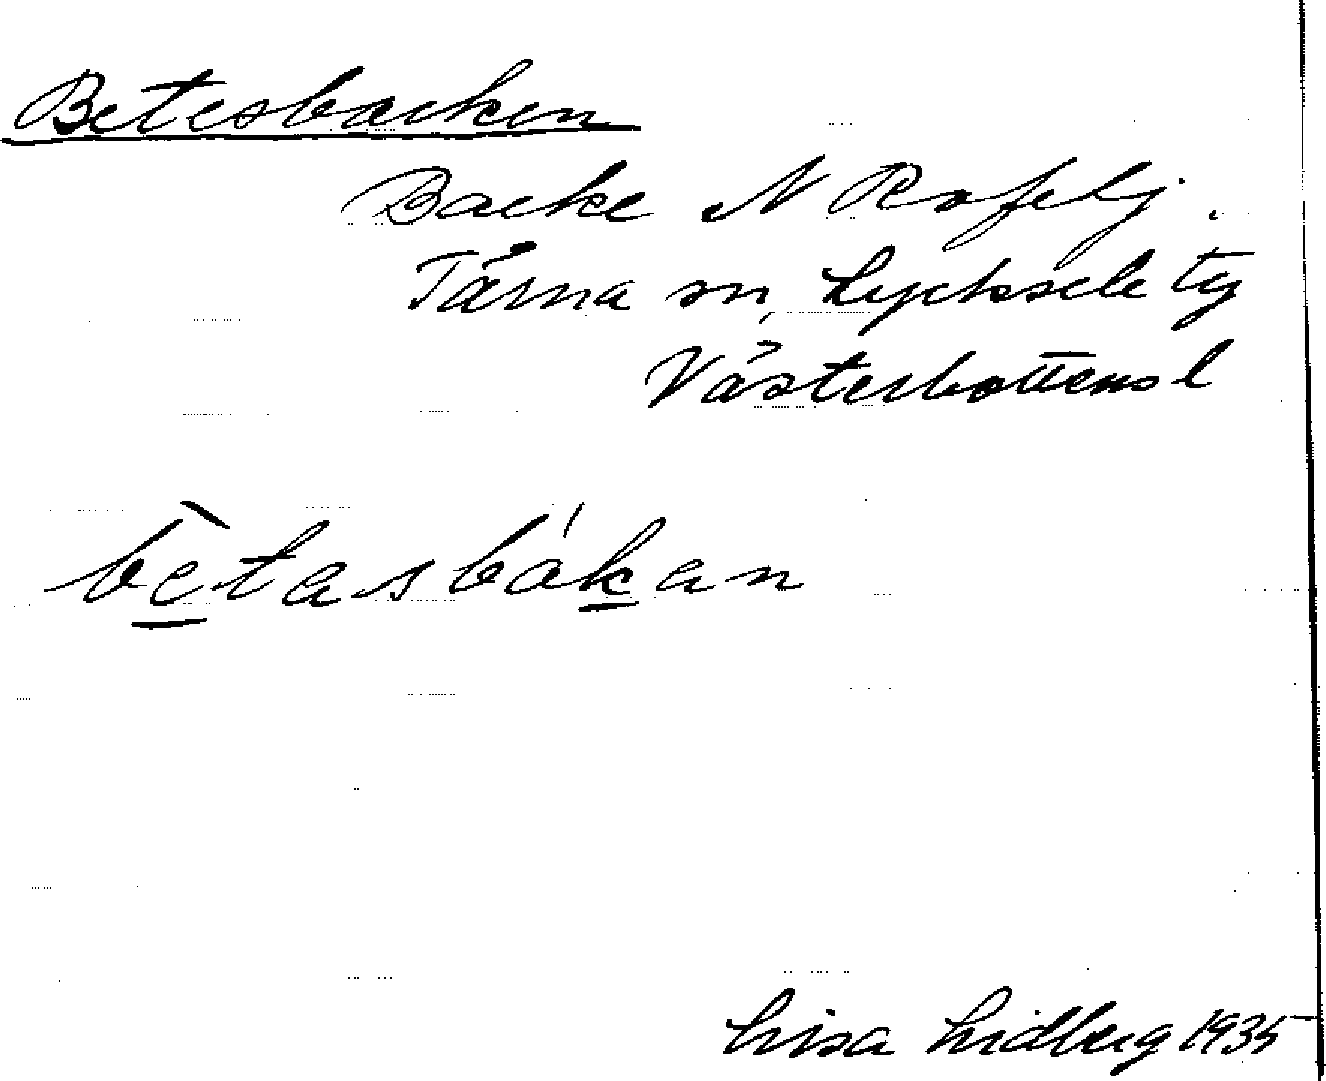 Betesbacken
Backe N
Tärna sn, Lycksele tg
Västerbottens l
bètasbákan
Lisa Lidberg 1935